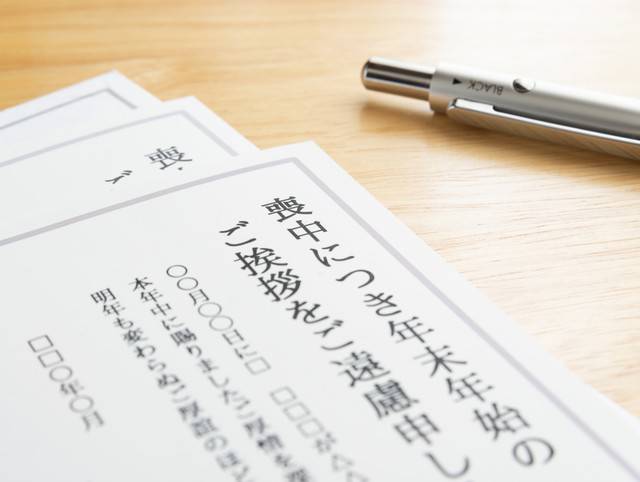 喪中につき年末年始の
ご挨拶をご遠慮申し
〇〇月〇〇日に□ □□□が△△
本年中に賜りましたご厚情を深
明年も変わらぬご厚誼のほど
□□〇年〇月
喪
ご
BLACK